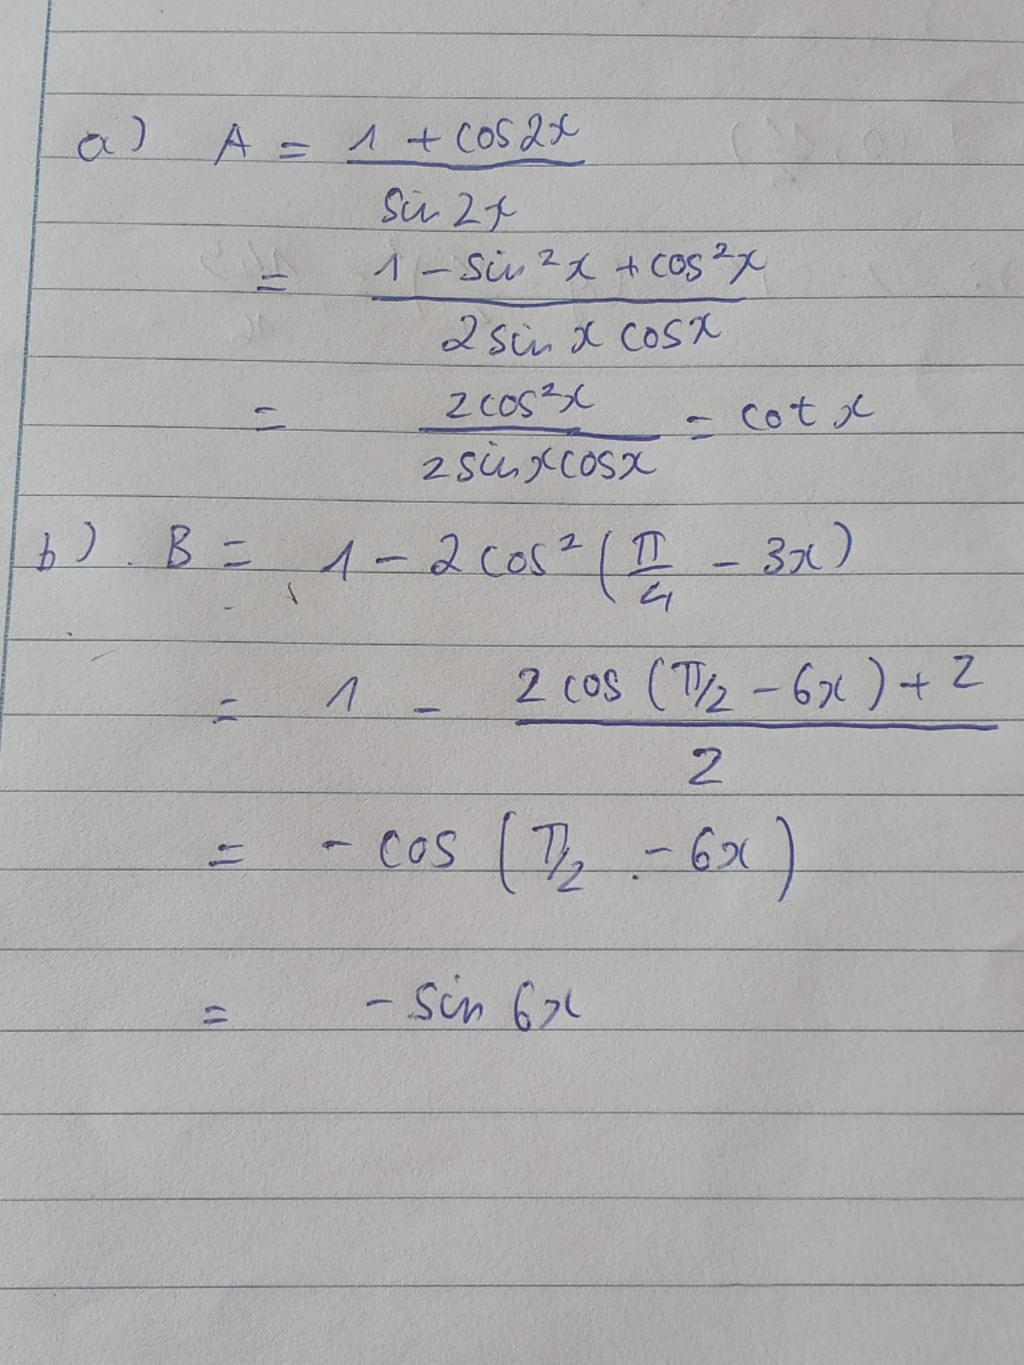 a) A = 1 + cos2x / sin 2x
= 1 - sin²x + cos²x / 2 sin x cos x
= 2cos²x / 2 sin x cos x = cot x
b) B = 1 - 2 cos² (π/4 - 3x)
= 1 - 2 cos (π/2 - 6x) + 2 / 2
= - cos (π/2 - 6x)
= - sin 6x